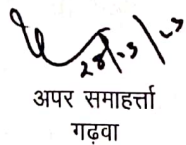 28/3/23
अपर समाहर्त्ता
गढ़वा